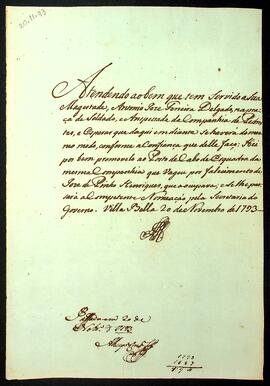 20.11.93
Atendendo ao bem que tem Servido a Sua
Magestade, Antonio Joze Ferreira Delgado, na pra-
ça de Soldado, e Anspeçada da Companhia de Pedes-
tes, e Esperar que daqui em diante se haverá do mes-
mo modo, conforme a Confiança que delle faço: Hei
por bem promovelo ao Posto de Cabo de Esquadra da
mesma Companhia que Vagou por falecimento de
Joze de Pinho Henriques, que a ocupava; e se lhe pas-
sará a Competente Nomeação pela Secretaria do
Governo. Villa Bella 20 de Novembro de 1793
em 20 de
Nobr.º de 1793
1793